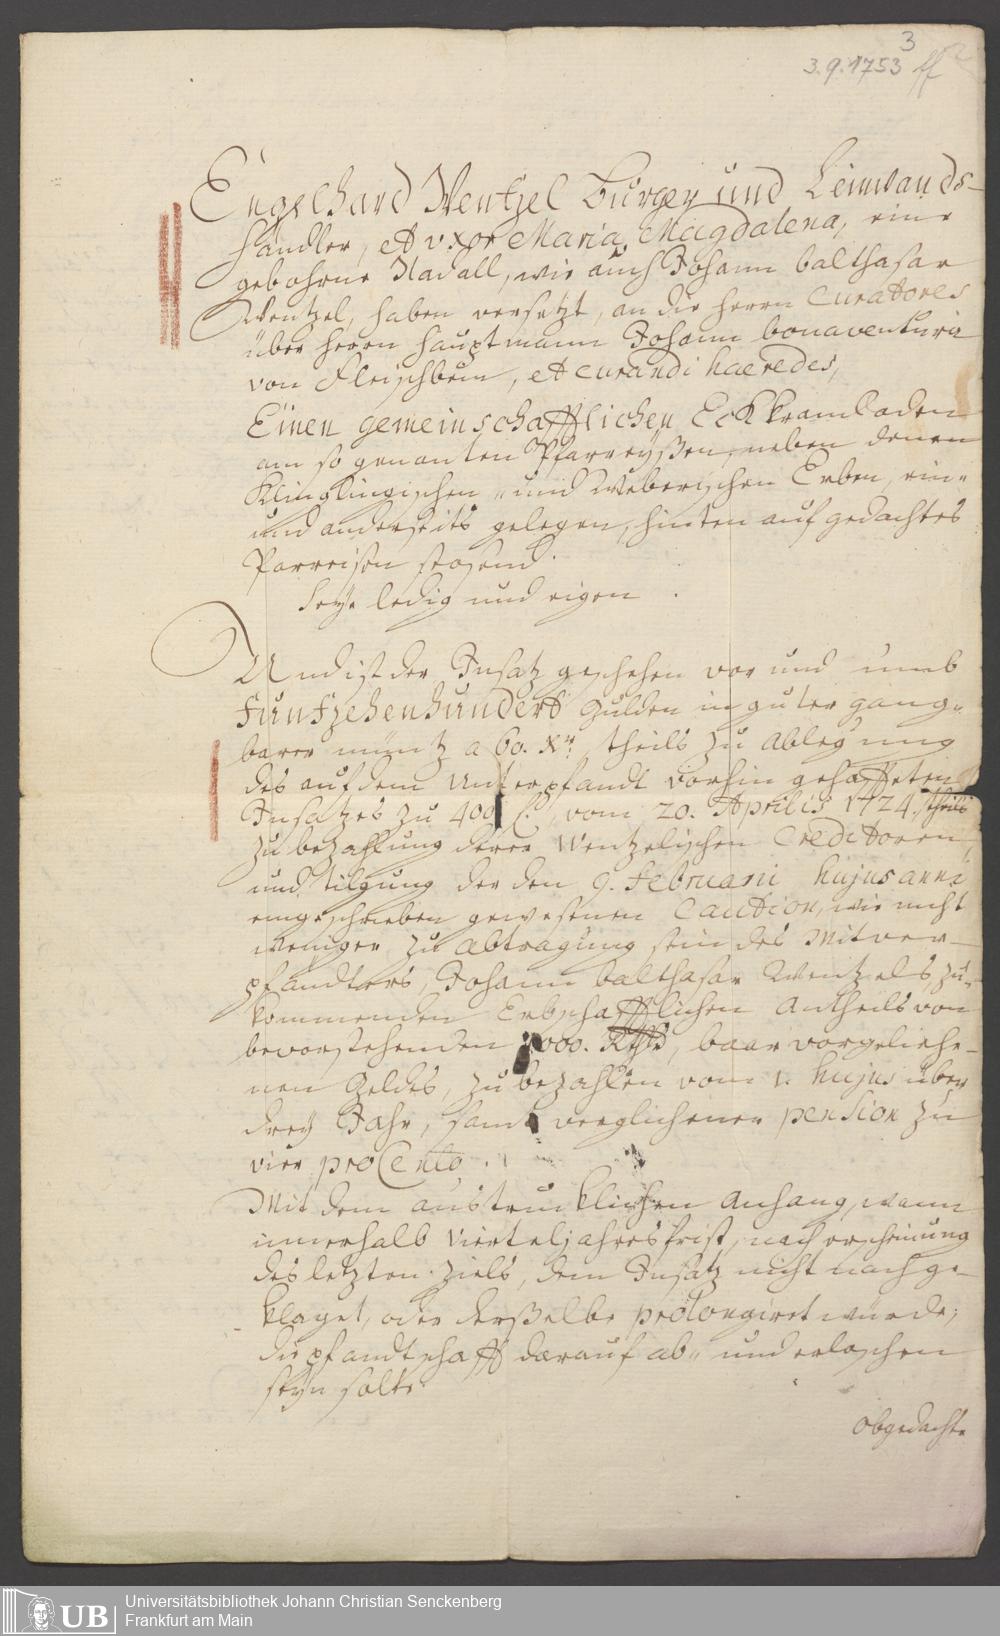 3
3.9.1753
Engelhard Wentzel Burger und Leinwands-
händler, et uxor Maria Magdalena, eine
gebohrne Nadall, wie auch Johann Balthasar
Wentzel, haben versetzt, an die Herrn Curatores
über Herrn Hauptmann Johann Bonaventura
von Fleischbein, et curandi haeredes,
Einen gemeinschafftlichen Eck Kramladen
am so genanten Pfarreyßen, neben denen
Klinglingischen „ und Weberischen Erben, ein„
und anderseits gelegen, hinten auf gedachtes
Parreisen stosend.
Seye ledig und eigen.
Und ist der Insatz geschehen vor und umb
Funfzehenhundert Gulden in guter gang„
barer müntz a 60. Xr, theils zu Ablegung
des auf dem Unterpfandt vorhin gehaffteten
Insatzes zu 400 f., vom 20. Aprilis 1724. theils
zu bezahlung derer Wentzelischen Creditoren,
und tilgung der den 9. Februarii hujus anni
eingeschrieben gewesenen Caution, wie nicht
weniger zu abtragung sein des Mitver-
pfändters, Johann Balthasar Wentzels, zu„
kommenden Erbschafftlichen Antheils von
bevorstehenden 1000. Rthlr, baar vorgeliehe-
nen Geldes, zu bezahlen vom 1. hujus über
drey Jahr, samt verglichener pension zu
vier pro Cento.
Mit dem austrucklichen Anhang, wann
innerhalb Vierteljahres frist, nach erscheinung
des letzten Ziels, dem Insatz nicht nachge-
klaget, oder derßelbe prolongiret würde,
die pfandtschafft darauf ab„ und erloschen
seyn solte.
obgedachte
UB
Universitätsbibliothek Johann Christian Senckenberg
Frankfurt am Main